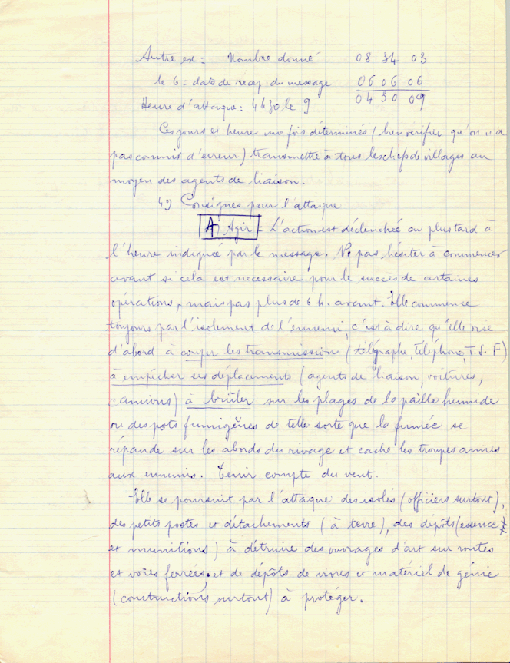 Autre ex : Nombre donné 08 34 03
le 6 = date de récep. du message 06 06 06
Heure d'attaque : 4h30 le 9 04 30 09
Ces jours et heure une fois déterminés (bien vérifier qu'on n'a
pas commis d'erreur) transmettre à tous les chefs de villages au
moyen des agents de liaison.
4°) Consignes pour l'attaque
A) Agir - L'action est déclenchée au plus tard à
l'heure indiquée par le message. Ne pas hésiter à commencer
avant si cela est nécessaire pour le succès de certaines
opérations, mais pas plus de 6 h. avant. Elle commence
toujours par l'isolement de l'ennemi, c'est à dire qu'elle vise
d'abord à couper les transmissions (télégraphe, téléphone, T.S.F)
à empêcher ses déplacements (agents de liaison, voitures,
camions) à brûler sur les plages de la paille humide
ou des pots fumigères de telle sorte que la fumée se
répande sur les abords du rivage et cache les troupes amies
aux ennemis. Tenir compte du vent.
Elle se poursuit par l'attaque des isolés (officiers surtout),
des petits postes et détachements (à terre), des dépôts (essence
et munitions) à détruire des ouvrages d'art sur routes
et voies ferrées, et de dépôts de vivres et matériel de génie
(constructions surtout) à protéger.